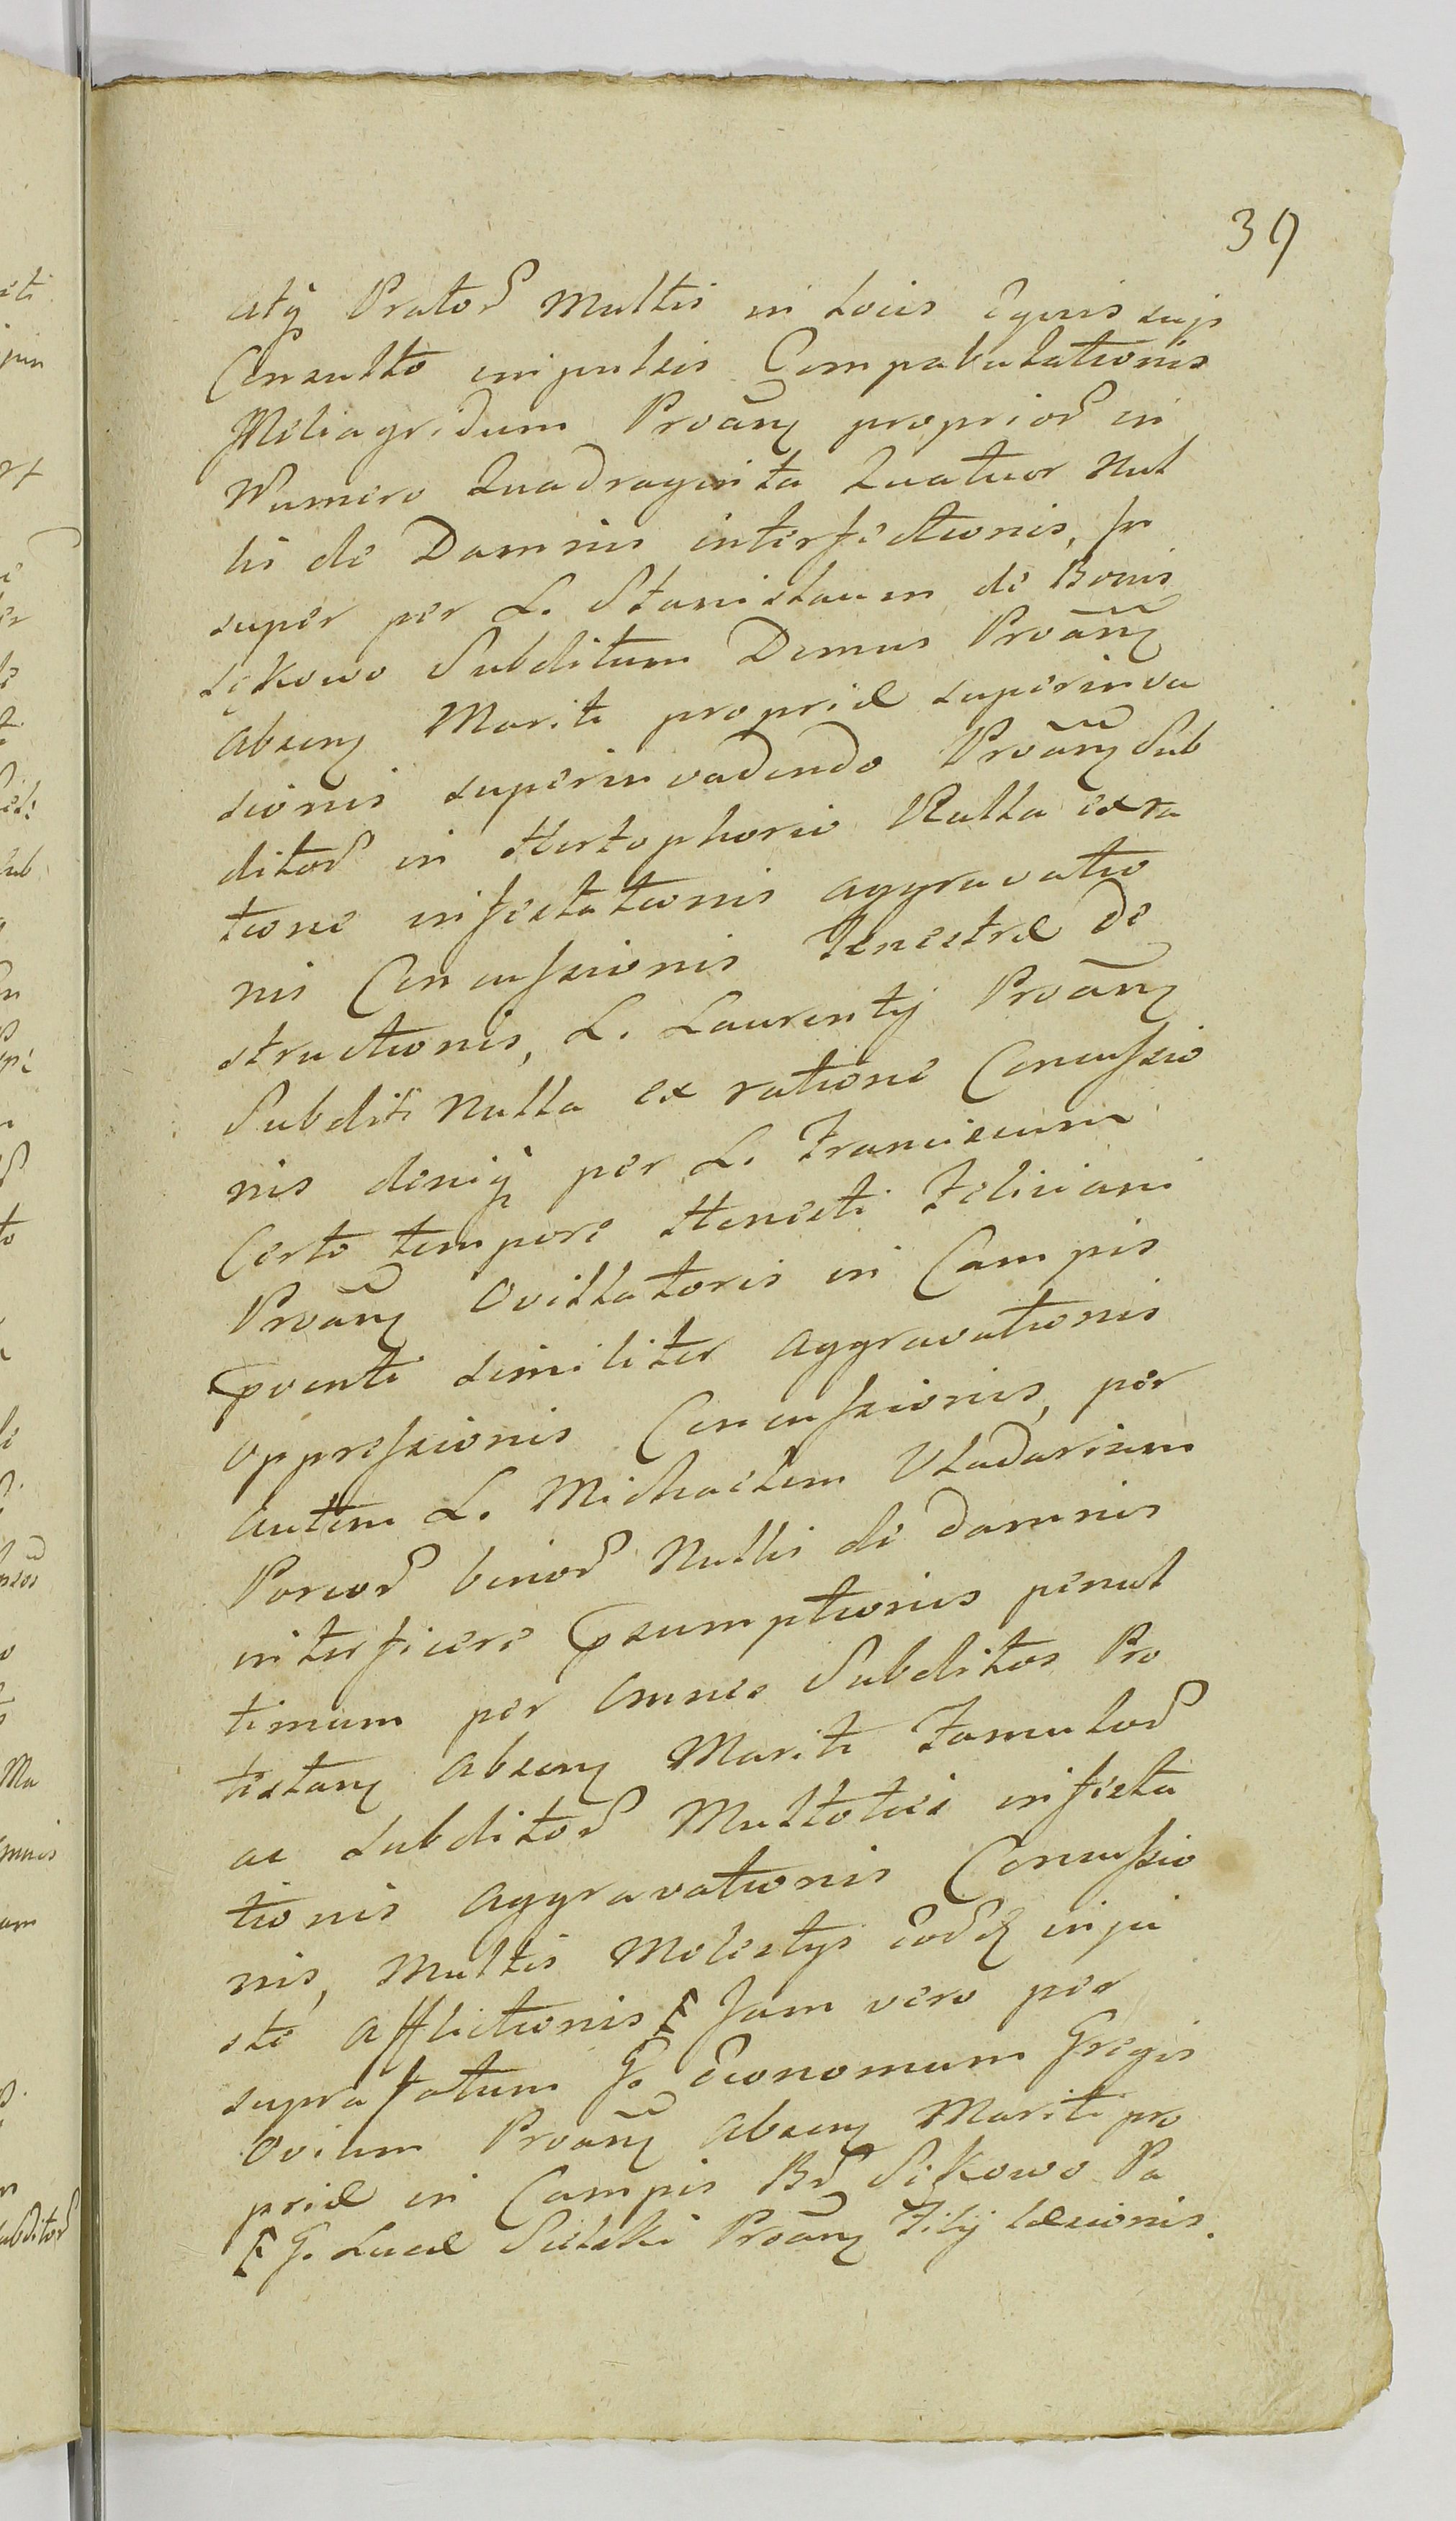 39
atq Prator Multis in Locis Equis sujs
Consulto impulsis Compabulationis
Meliagridum Proãnꝫ proprior in
Numero Quadraginta Quatuor Nul
lis de Damnis interfectionis, In
super per L. Stanislaum de Bonis
Sękowo Subditum Domus Proãnꝫ
absenꝫ Mariti propriæ superinva
sionis superinvadendo Proãnꝫ Sub
ditor in Hortophorio Nulla exra
tione infestationis aggravatio
nis Concussionis Fenestræ De
structionis, L. Laurentij Proãnꝫ
Subditi Nulla ex ratione Concussio
nis deniq per L. Franciscum
Certo tempore Honesti Feliciani
Proãnꝫ Ovillatoris in Campis
pventi similiter aggravationis
oppressionis Concussionis, per
autem L. Michaelem Vladarium
Porcor binor Nullis de damnis
interficere Psumptionis penul
timum per Omnes Subditos Pro
testanꝫ absenꝫ Mariti Famulor
ac subditor Multoties infesta
tionis aggravationis Concussio
nis, Multis Molestijs Eord inju
ste afflictionis Jam vero per
suprafatum G. Œconomum Gregis
Ovium Proãnꝫ absenꝫ Mariti pro
priæ in Campis Br Sękowo Pa
G. Lucæ Sielski Proãnꝫ Filij læsionis.